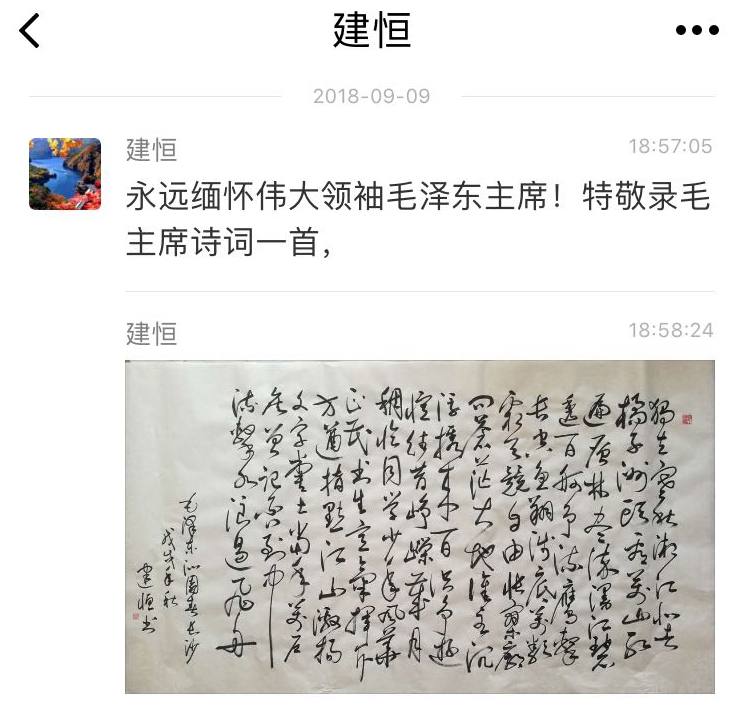 建恒
2018-09-09
建恒 18:57:05
永远缅怀伟大领袖毛泽东主席！特敬录毛
主席诗词一首，
建恒 18:58:24
獨立寒秋湘江北去
橘子洲頭看萬山紅
遍层林尽染漫江碧
透百舸争流鷹擊
长空魚翔浅底萬類
霜天競自由怅寥廓
问苍茫大地誰主沉
浮携来百侣曾游
憶往昔峥嵘歲月
稠恰同学少年风華
正茂书生意气揮斥
方遒指點江山激揚
文字粪土當年萬户
侯曾记否到中
流擊水浪遏飞舟
毛澤东沁園春长沙
戊戌年秋
建恒书